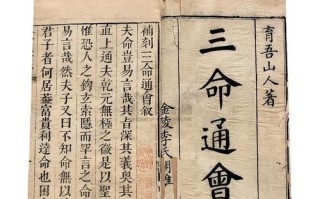 育吾山人著
三命通會
金陵李氏
補刻三命通會叙
夫命豈易言哉其旨深其義奥其
直上通夫乾元無極之徵是以聖
惟恐人之鉤玄索隱而罕言之命
易言哉然夫子又曰不知命無以
君子者何居蓋富貴利達命也困